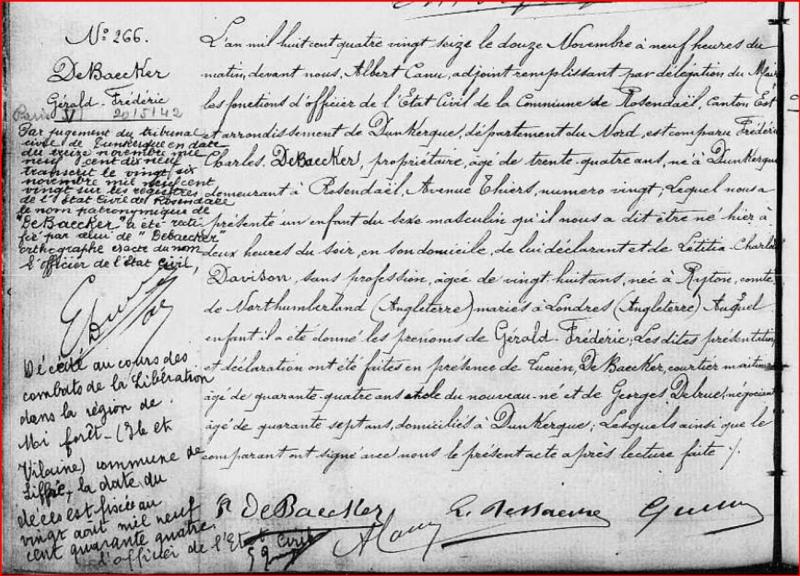 N° 266.
DeBaecker
Gérald-Frédéric
Paris V 2015142
Par jugement du tribunal
civil de Dunkerque en date
du treize novembre mil
neuf cent dix neuf
transcrit le vingt six
novembre mil neuf cent
vingt sur les registres
de l'Etat Civil de Rosendaël
le nom patronymique de
"DeBaecker" a été recti
fié par celui de "Debaecker"
orthographe exacte du nom
L'officier de l'état civil,
Décédé au cours des
combats de la Libération
dans la région de
Mi forêt - (Ile et
Vilaine) commune de
Liffré, la date du
décès est fixée au
vingt août mil neuf
cent quarante quatre.
L'officier de l'Etat Civil
L'an mil huit cent quatre vingt seize le douze Novembre à neuf heures du
matin, devant nous, Albert Canu, adjoint remplissant par délégation du Maire
les fonctions d'officier de l'Etat Civil de la Commune de Rosendaël, canton Est
et arrondissement de Dunkerque, département du Nord, est comparu Frédéric
Charles DeBaecker, propriétaire, âgé de trente-quatre ans, né à Dunkerque
demeurant à Rosendaël, Avenue Thiers, numero vingt; Lequel nous a
présenté un enfant du sexe masculin qu'il nous a dit être né hier à
deux heures du soir, en son domicile, de lui déclarant et de Letitia Charlotte
Davison, sans profession, âgée de vingt-huit ans, née à Ryton, comté
de Northumberland (Angleterre) mariés à Londres (Angleterre) Auquel
enfant il a été donné les prénoms de Gérald-Frédéric; Les dites présentation
et déclaration ont été faites en présence de Lucien, DeBaecker, courtier maritime
âgé de quarante-quatre ans oncle du nouveau-né et de Georges Debruc, négociant
âgé de quarante sept ans, domiciliés à Dunkerque; Lesquels ainsi que le
comparant ont signé avec nous le présent acte après lecture faite /.
DeBaecker